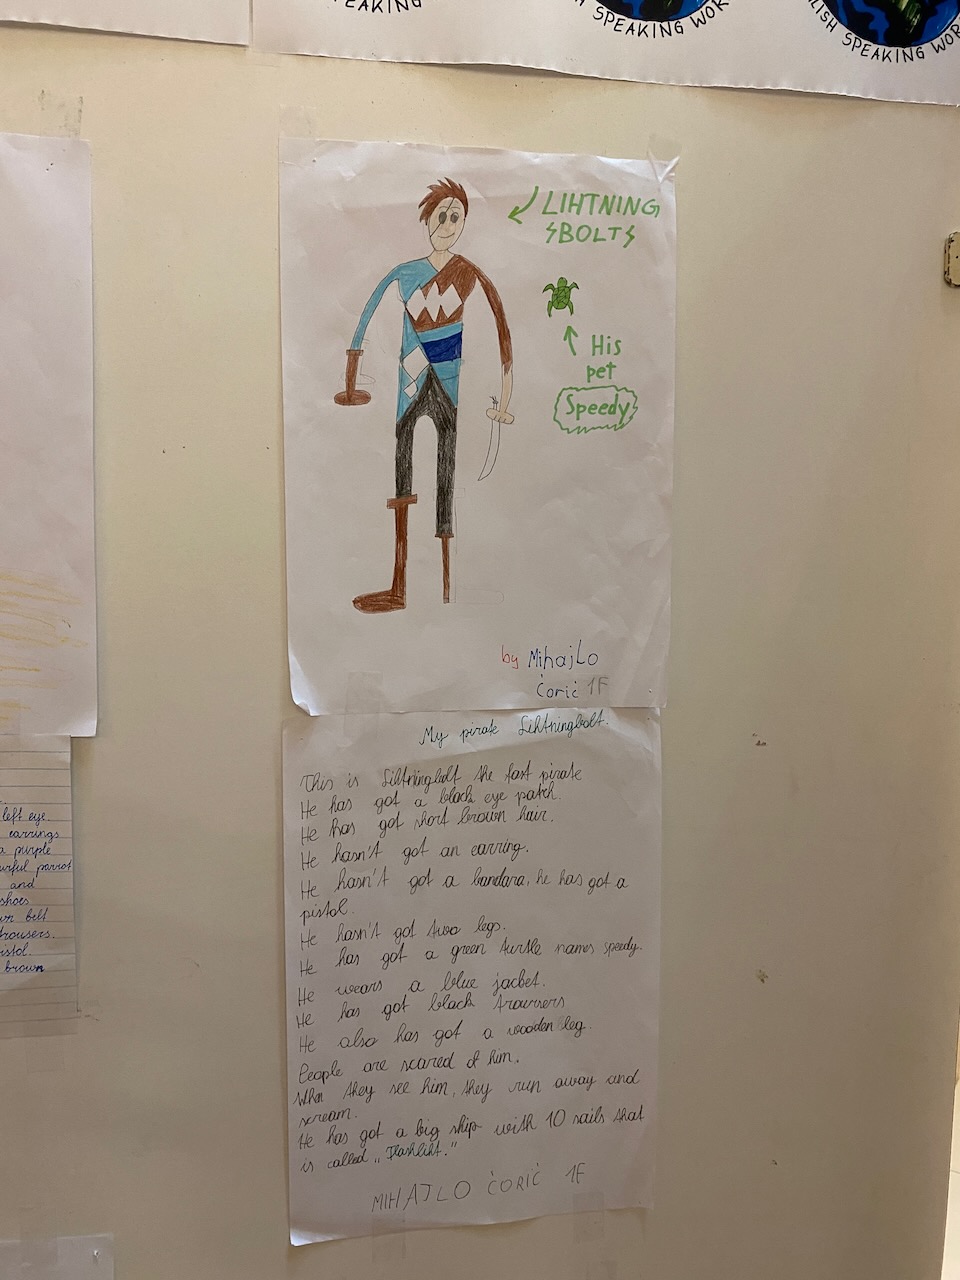 PEAKING
SPEAKING WOR
LISH SPEAKING WOR
LIHTNING
BOLTS
His
pet
Speedy
by Mihajlo
Ćorić 1F
My pirate Lihtningbolt.
This is Lihtningbolt the fast pirate
He has got a black eye patch.
He has got short brown hair.
He hasn't got an earring.
He hasn't got a bandara, he has got a
pistol.
He hasn't got two legs.
He has got a green turtle names speedy.
He wears a blue jacket.
He has got black trowsers
He also has got a wooden leg.
People are scared of him.
When they see him, they run away and
scream.
He has got a big ship with 10 sails that
is called „Flashliht."
MIHAJLO ĆORIĆ 1F
left eye.
earrings
a purple
urful parrot
and
shoes
wn belt
trousers.
istol.
brown